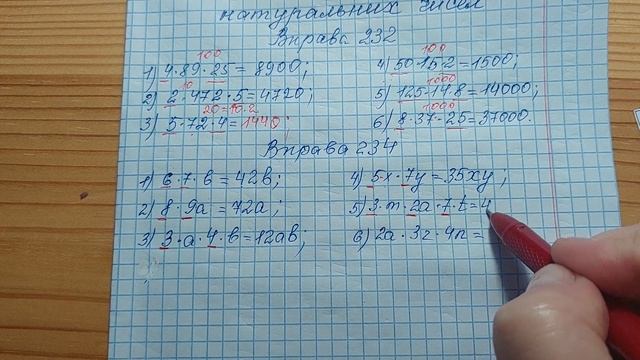 натуральних чисел
Вправа 232
100
1) 4·89·25=8900;
10
2) 2·472·5=4720;
20=10·2
3) 5·72·4=1440;
100
4) 50·15·2=1500;
1000
5) 125·14·8=14000;
1000
6) 8·37·125=37000.
Вправа 234
1) 6·7·b=42b;
2) 8·9a=72a;
3) 3·a·4·b=12ab;
4) 5x·7y=35xy;
5) 3·m·2a·7·t=4
6) 2a·3z·4n=